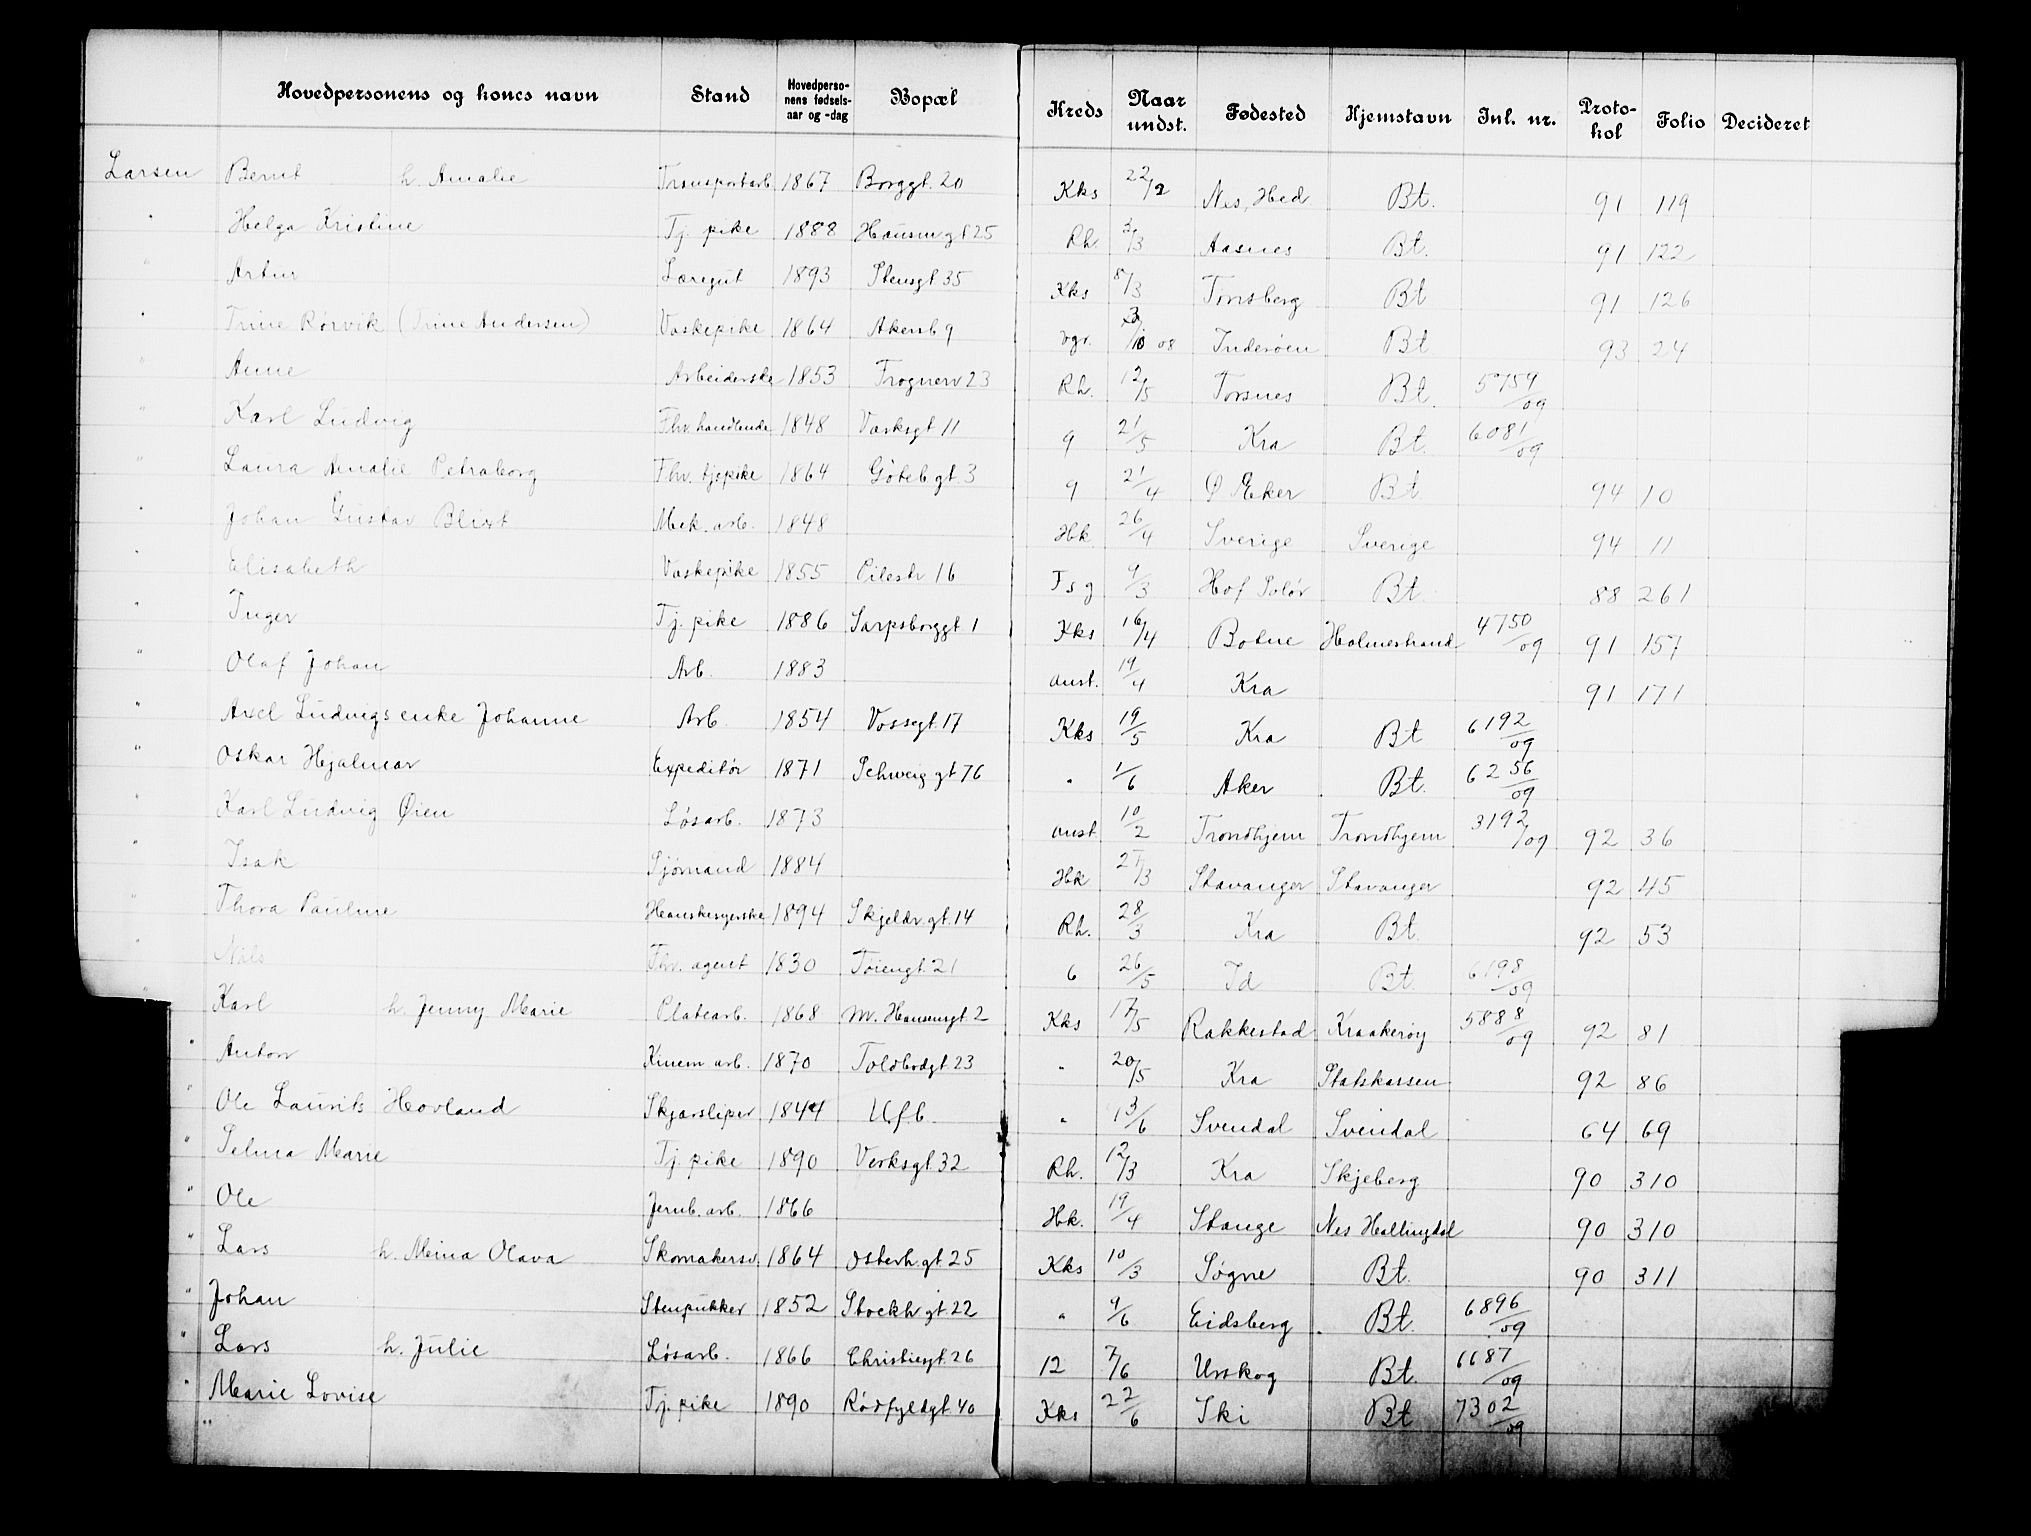 Hovedpersonens og kones navn | Stand | Hovedperso-nens fødsels-aar og -dag | Bopæl | Kreds | Naar undst. | Fødested | Hjemstavn | Inl. nr. | Proto-kol | Folio | Decideret
Larsen Bernt h. Amalie | Transportarb. | 1867 | Borggt. 20 | Kks | 22/2 | Nes, Hed | Bt. | | 91 | 119
" Helga Kristine | Tj. pike | 1888 | Hausmgt 25 | Rh. | 2/3 | Aasnes | Bt. | | 91 | 122
" Artur | Læregut | 1893 | Stensgt 35 | Kks | 8/3 | Tønsberg | Bt | | 91 | 126
" Trine Rørvik (Trine Andersen) | Vaskepike | 1864 | Akersb 9 | Vgr. | /10 08 | Inderøen | Bt | | 93 | 24
" Anne | Arbeiderske | 1853 | Frognerv 23 | Rh. | 12/5 | Torsnes | Bt. | 5759/09
" Karl Ludvig | Fhv. handlende | 1848 | Værksgt 11 | 9 | 21/5 | Kra | Bt. | 6081/09
" Laura Amalie Petraborg | Fhv. tjepike | 1864 | Göteb gt. 3 | 9 | 21/4 | Ø Eker | Bt | | 94 | 10
" Johan Gustav Blixt | Mek. arb. | 1848 | | Hk | 26/4 | Sverige | Sverige | | 94 | 11
" Elisabeth | Vaskepike | 1855 | Pilestr 16 | Fsg | 9/3 | Hof Solør | Bt. | | 88 | 261
" Inger | Tj. pike | 1886 | Sarpsborggt 1 | Kks | 16/4 | Botne | Holmestrand | 4750/09 | 91 | 157
" Olaf Johan | Arb. | 1883 | | anst. | 19/4 | Kra | | | 91 | 171
" Axel Ludvigs enke Johanne | Arb. | 1854 | Vossegt. 17 | Kks | 19/5 | Kra | Bt | 6192/09
" Oskar Hjalmar | Expeditør | 1871 | Schweig gt 76 | " | 1/6 | Aker | Bt. | 6256/09
" Karl Ludvig Øien | Løsarb. | 1873 | | anst. | 10/2 | Trondhjem | Trondhjem | 3192/09 | 92 | 36
" Isak | Sjømand | 1884 | | Hk | 27/3 | Stavanger | Stavanger | | 92 | 45
" Thora Pauline | Hanskesyerske | 1894 | Skjeldr gt. 14 | Rh. | 28/3 | Kra | Bt. | | 92 | 53
" Nils | Fhv. agent | 1830 | Tøiengt. 21 | 6 | 26/5 | Id | Bt. | 6198/09
" Karl h. Jenny Marie | Platearb. | 1868 | M. Hansensgt. 2 | Kks | 17/5 | Rakkestad | Kraakerøy | 5888/09 | 92 | 81
" Anton | Kinem arb. | 1870 | Toldbodgt. 23 | " | 20/5 | Kra | Statskassen | | 92 | 86
" Ole Laurits Hovland | Skjærsliper | 1844 | Ufb. | " | 13/6 | Svendal | Svendal | | 64 | 69
" Selma Marie | Tj. pike | 1890 | Verksgt. 32 | Rh. | 12/3 | Kra | Skjeberg | | 90 | 310
" Ole | Jernb. arb. | 1866 | | Hk. | 19/4 | Stange | Nes Hallingdal | | 90 | 310
" Lars h. Meina Olava | Skomakersv. | 1864 | Osterh. gt. 25 | Kks | 10/3 | Søgne | Bt. | | 90 | 311
" Johan | Stenpukker | 1852 | Stockh gt 22 | " | 9/6 | Eidsberg | Bt. | 6896/09
" Lars h. Julie | Løsarb. | 1866 | Christiesgt. 26 | 12 | 7/6 | Urskog | Bt. | 6687/09
" Marie Lovise | Tj. pike | 1890 | Rødfyldgt. 40 | Kks | 22/6 | Ski | Bt | 7302/09
"